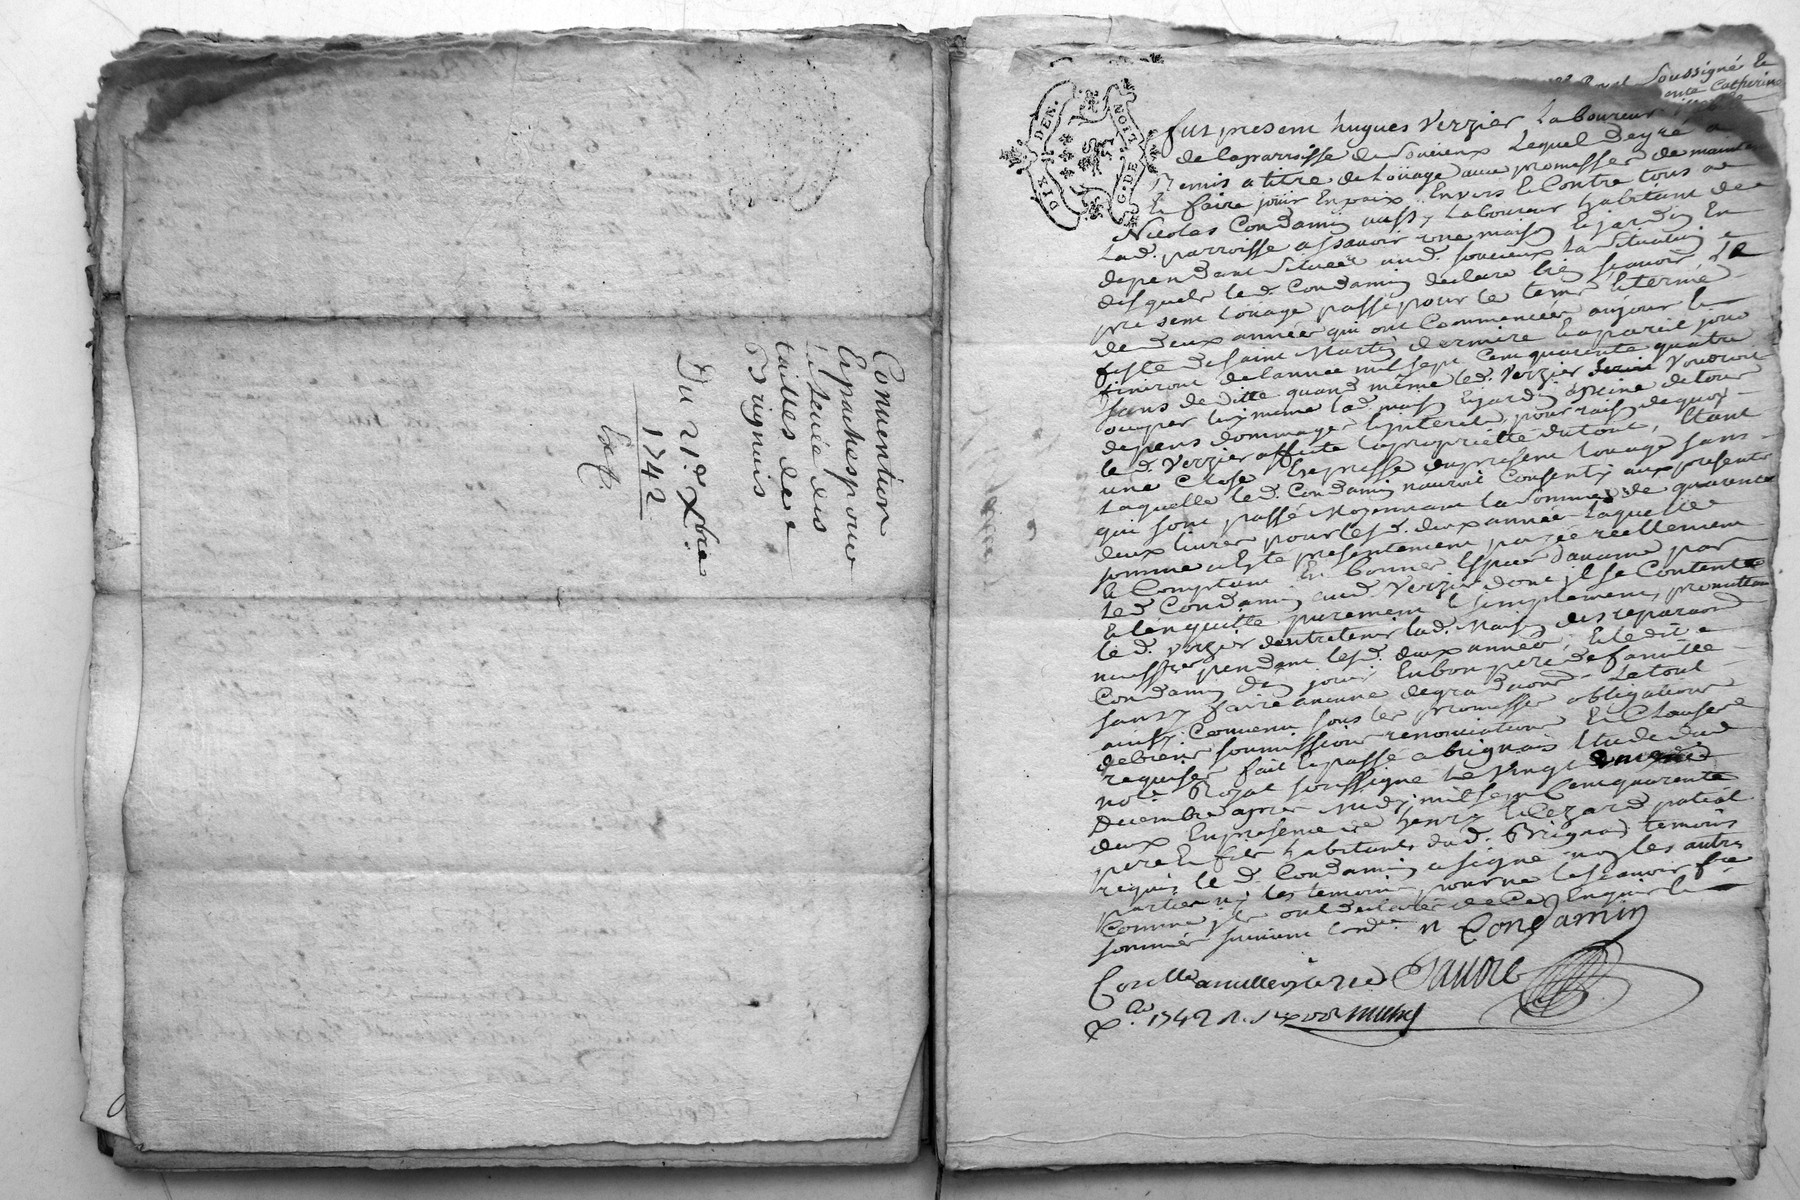 Convention
Et paches pour
la levée des
tailles de
Brignais
Du 21e Xbre
1742
Ext
soussigné &
DIX DEN.
G. DE LION
fut present hugues Verzier Laboureur
de la parroisse de Soucieux Lequel de gré a
Remis a titre de Loüage avec promesse de mainten
& faire joüir En paix Envers & Contre tous a
Nicolas Condamin aussy Laboureur habitant de
Lad. parroisse assavoir une maison & jardin En
dependant Situéés aud. soucieux La Situation
desquels led. Condamin declare bien scavoir, Le
present loüage passé pour le tems & terme
de deux années qui ont Commencées aujour &
feste de saint Martin dernire & a pareil jour
finiront de lannée mil sept Cent quarante quatre
sans de ditte quand même led. Verzier voudroit
occuper luy meme lad. maison & jardin a peine de tous
depens dommages & interets, pour raison de quoy
led. Verzier affecte la proprieté du tout, Etant
une Close Expresse du present loüage sans
Laquelle led. Condamin nauroit Consenty aux presentes
qui sont passé Moyennant la somme de quarante
deux livres pour lesd. deux années Laquelle
somme a Eté presentement payéé réellement
& Comptant En bonnes Especes davance par
led. Condamin aud. Verzier dont il se Contente
& len quitte purement & simplement, promettant
le d. Verzier dentretenir lad. Maison des reparaons
necessres pendant lesd. deux années, Et ledit
Condamin den jouir En bon pere de famille
sans y faire aucune degradaons - Le tout
ainsy Convenu sous les promesses obligations
de biens soumissions renonciations & Clauses
requises fait & passé a brignais Etude dud
note Royal soussigné Le vingt
Decembre apres midy mil sept Cent quarante
deux En presence de henry & Cezard patial
pere & fils habitants dud. Brignais temoins
requis le d. Condamin a signé non les autres
parties ny les temoins pour ne le scavoir fre
Comme ils ont declarés de Ce Enquis &
sommés suivant lord.ce n Condamin
Conlle a millery le 22e
Xbre 1742 R.